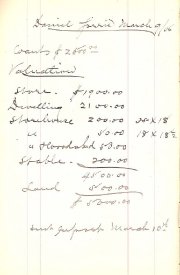 Daniel March 9/06
Wants $2500.00
Valuation
Store. $1900.00
Dwelling 2100.00
Storehouse 200.00 25 x 18
" 50.00 18 x 18
" 50.00
Stable. 200.00
4500.00
Land 500.00
$5000.00
March 10th